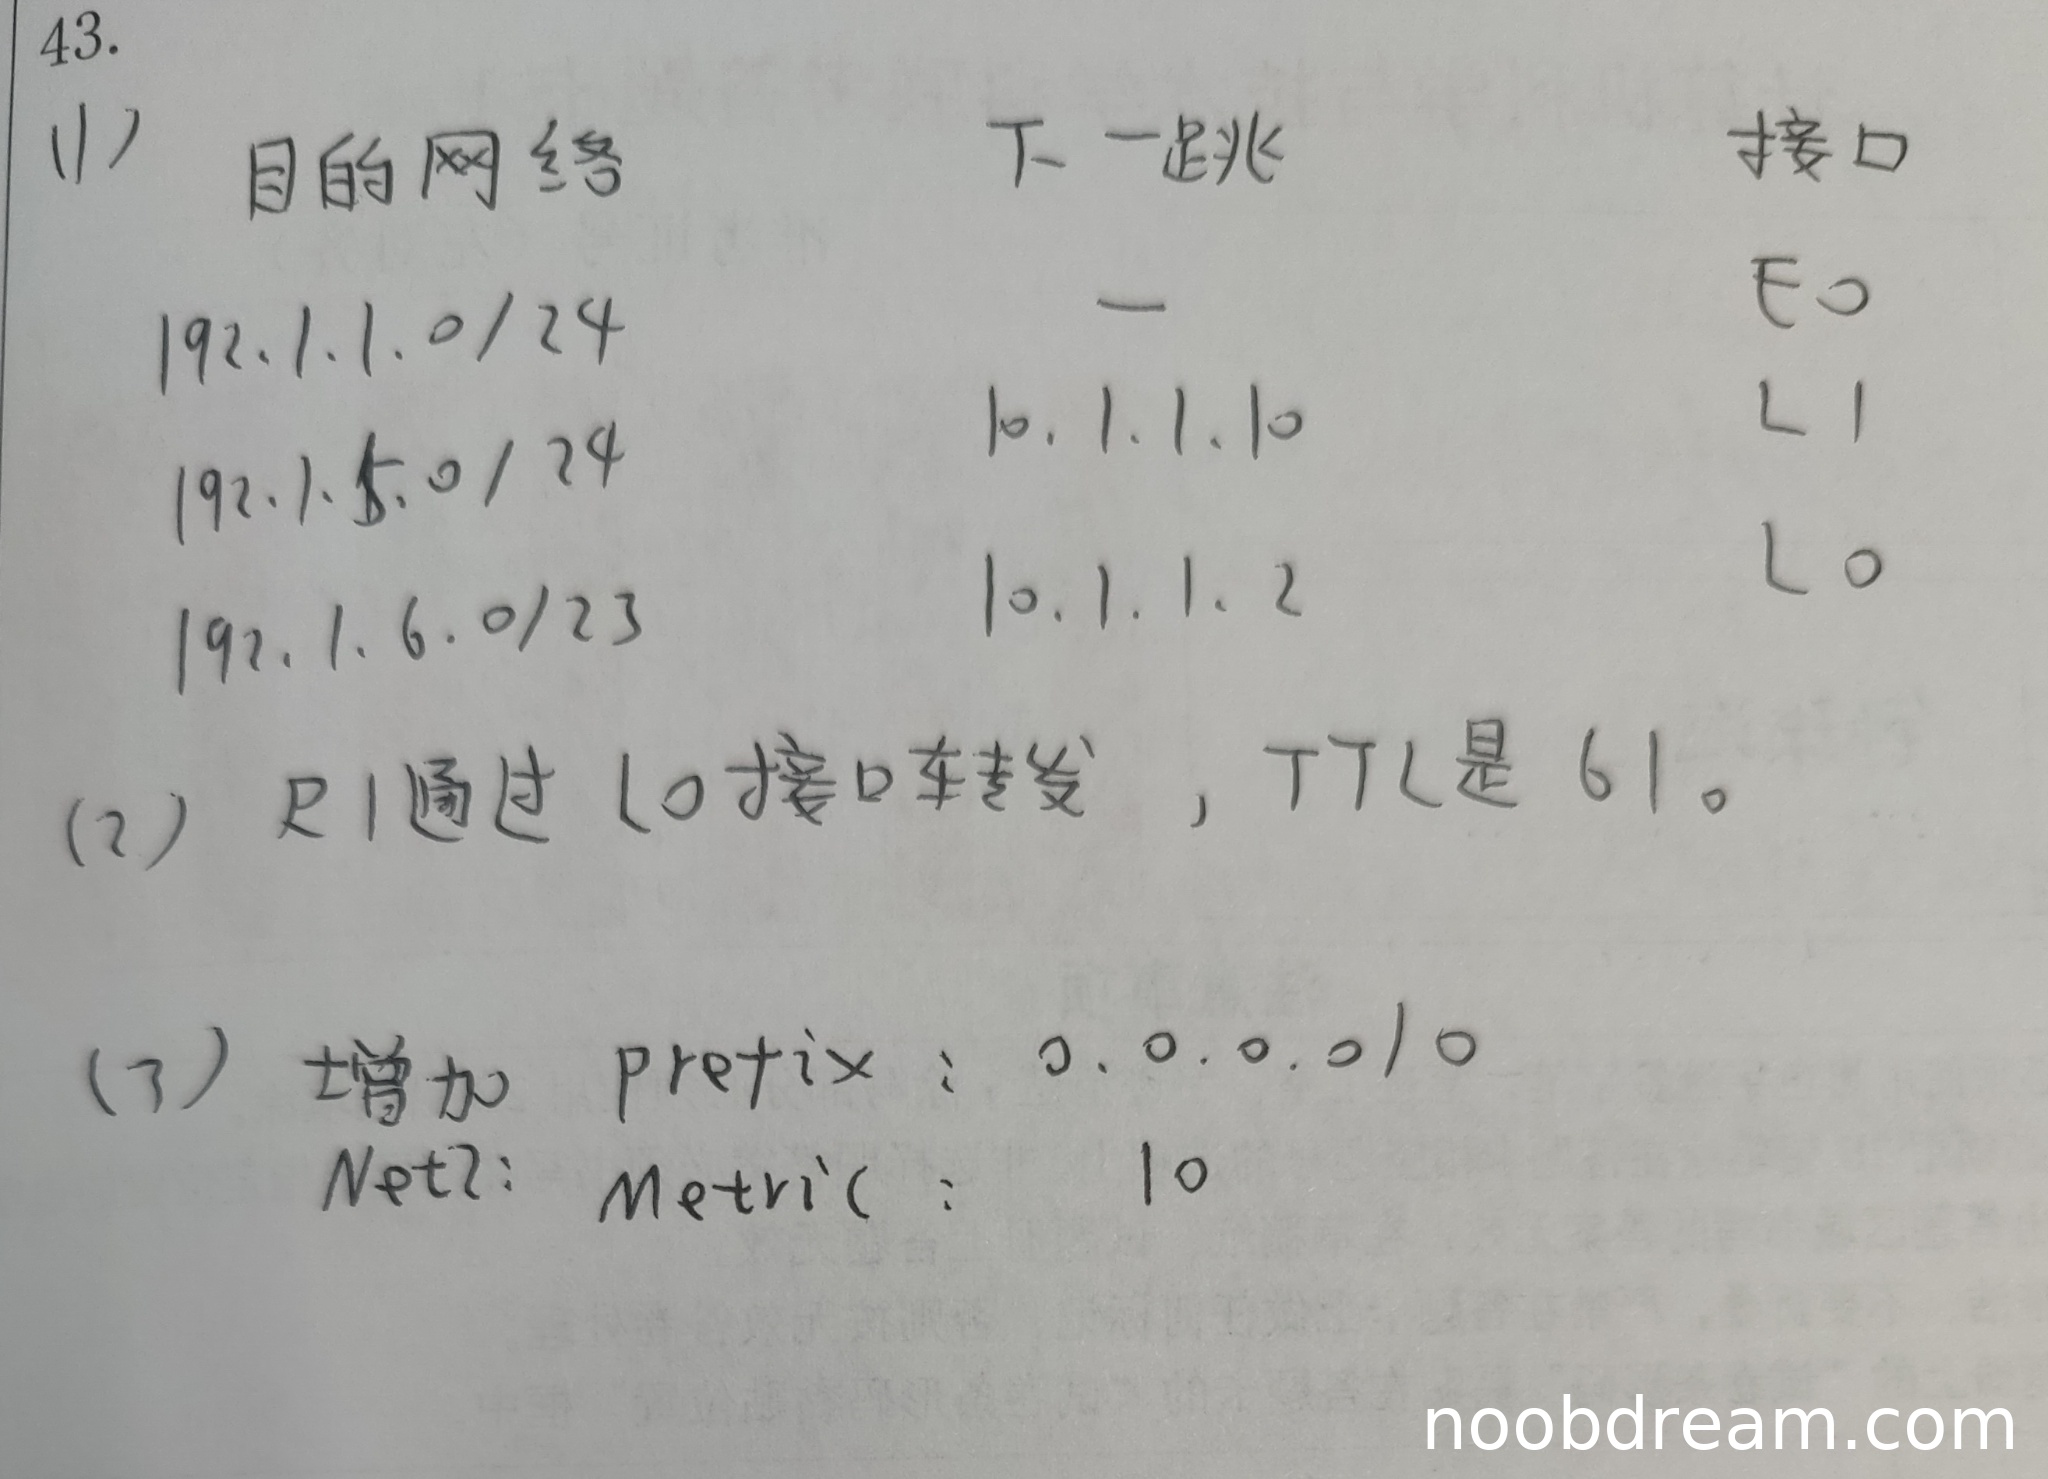 43.
(1) 目的网络 下一跳 接口
192.1.1.0/24 — E0
192.1.5.0/24 10.1.1.10 L1
192.1.6.0/23 10.1.1.2 L0
(2) R1通过L0接口转发，TTL是61。
(3) 增加 prefix: 0.0.0.0/0
Net2: Metric: 10
noobdream.com